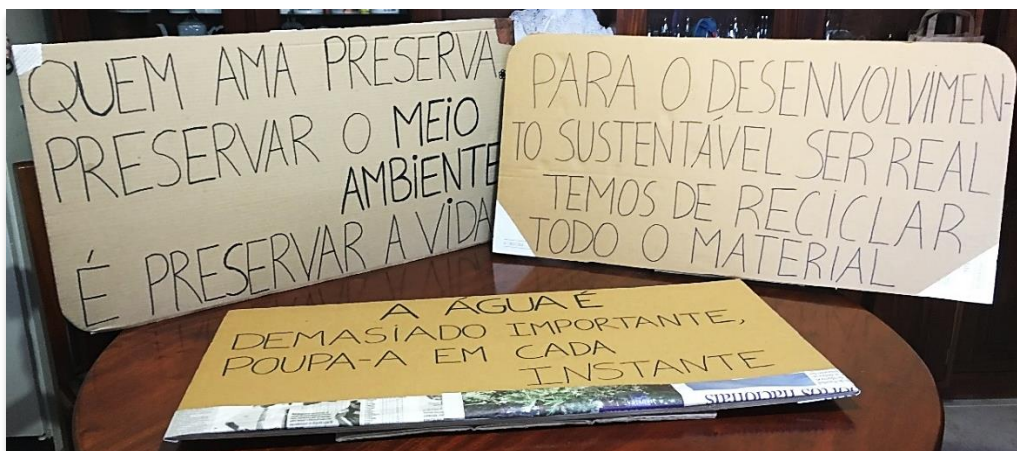 QUEM AMA PRESERVA.
PRESERVAR O MEIO
AMBIENTE
É PRESERVAR A VIDA
PARA O DESENVOLVIMEN-
TO SUSTENTÁVEL SER REAL
TEMOS DE RECICLAR
TODO O MATERIAL
A ÁGUA É
DEMASIADO IMPORTANTE,
POUPA-A EM CADA
INSTANTE
nacionais